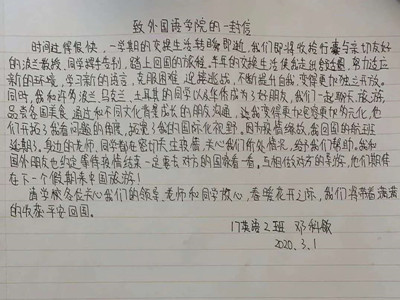 致外国语学院的一封信
时间过得很快,一学期的交换生活转瞬即逝,我们即将收拾行囊与亲切友好
的波兰教授、同学挥手告别,踏上回国的旅程。半年的交换生活使我走出舒适圈,努力适应
新的环境,学习新的语言,克服困难,迎接挑战,不断提升自我,变得更加独立开放。
同时,我和许多波兰、乌克兰、土耳其的同学以及华侨成为了好朋友,我们一起聊天、旅游、
品尝各国美食,通过和不同文化背景成长的朋友沟通,让我变得更加包容更加多元化,他
们开拓了我看问题的角度,拓宽了我的国际化视野。因为疫情缘故,我回国的航班
延期了。身边的老师、同学都在密切关注疫情,关心我们的处境况,给予我们帮助。我和
国外朋友也约定等待疫情结束一定要去对方的国家看一看。互相做对方的导游,他们期待
在下一个假期来中国旅游!
请学校各位关心我们的领导、老师和同学放心,春暖花开之际,我们将带着满满
的收获平安回国。
17英语2班 邓科敏
2020.3.1